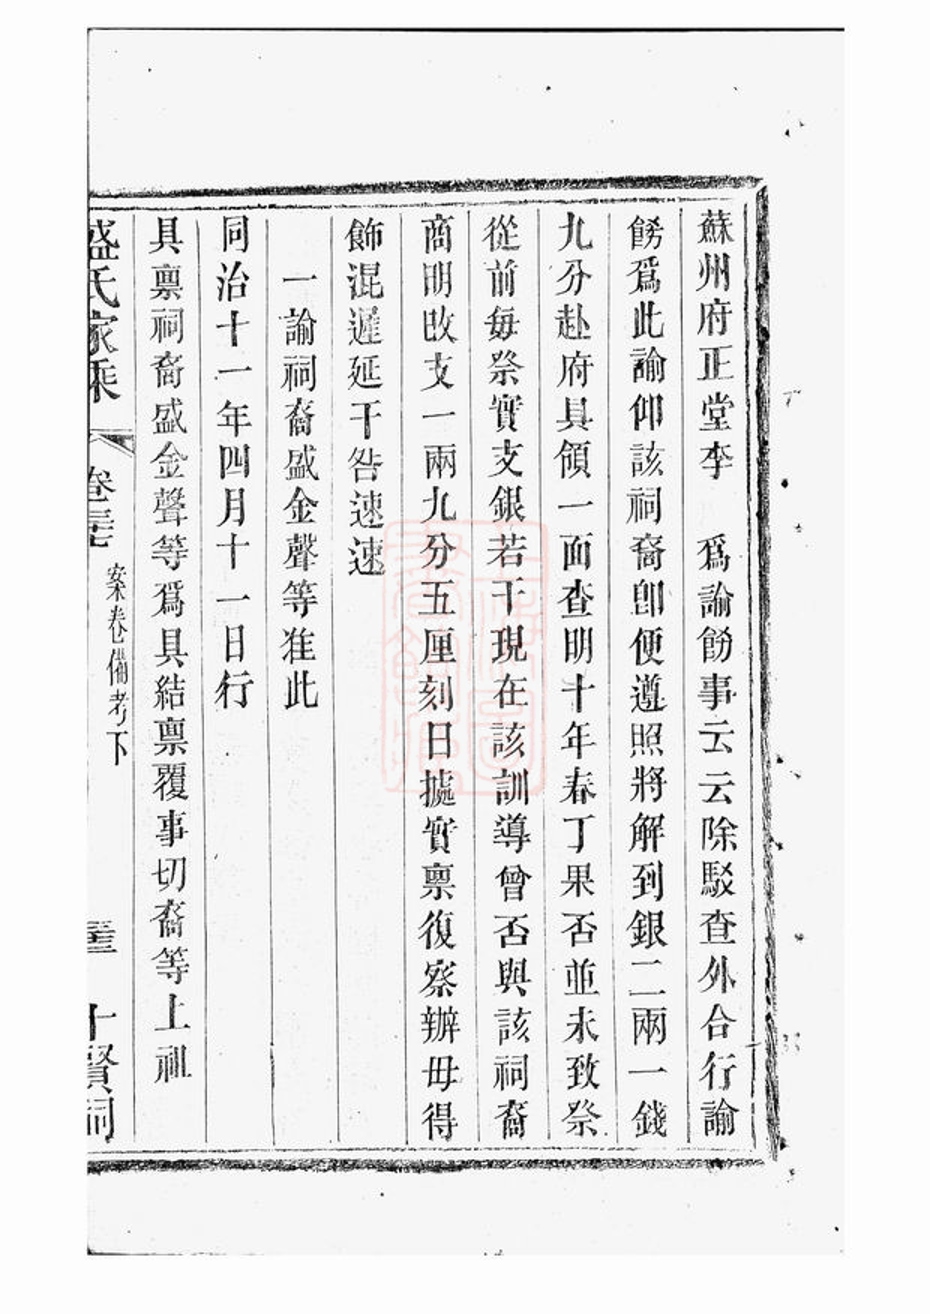 蘇州府正堂李　爲諭餝事云云除駁查外合行諭
餝爲此諭仰該祠裔卽便遵照將解到銀二兩一錢
九分赴府具領一面查明十年春丁果否並未致祭
從前每祭實支銀若干現在該訓導曾否與該祠裔
商明改支一兩九分五厘刻日據實禀復察辦毋得
飾混遲延干咎速速
一諭祠裔盛金聲等准此
同治十一年四月十一日行
具禀祠裔盛金聲等爲具結禀覆事切裔等上祖
盛氏家乘　卷　案卷備考下　十賢祠